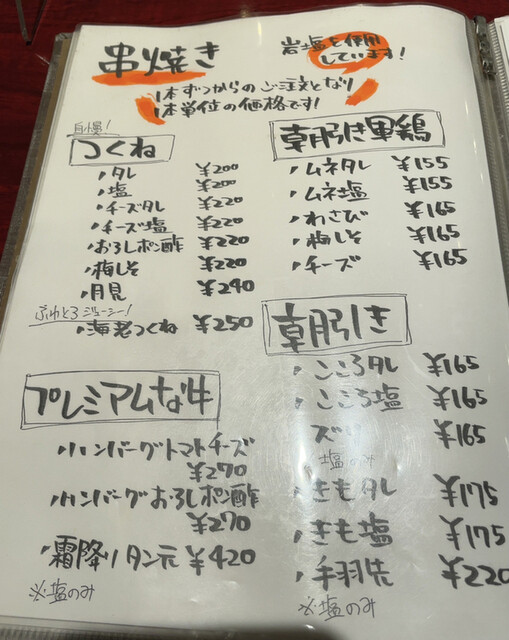 串焼き
岩塩を使用
しています!
1本ずつからのご注文となり
1本単位の価格です!
自慢!
つくね
・タレ ¥200
・塩 ¥200
・チーズタレ ¥220
・チーズ塩 ¥220
・おろしポン酢 ¥220
・梅しそ ¥220
・月見 ¥240
ふわとろジューシー!
・海老つくね ¥250
プレミアムな牛
・ハンバーグトマトチーズ
¥270
・ハンバーグおろしポン酢
¥270
・霜降りタン元 ¥420
※塩のみ
朝引き軍鶏
・ムネタレ ¥155
・ムネ塩 ¥155
・わさび ¥165
・梅しそ ¥165
・チーズ ¥165
朝引き
・こころタレ ¥165
・こころ塩 ¥165
ズリ ¥165
塩のみ
・きもタレ ¥175
・きも塩 ¥175
・手羽先 ¥220
※塩のみ